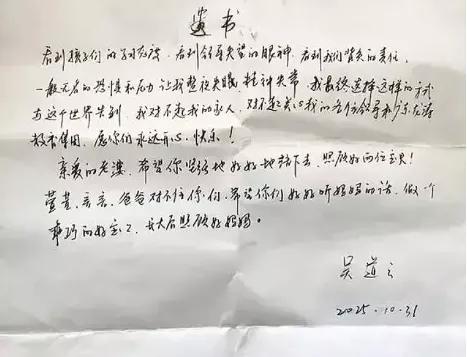 遗书
看到孩子们的学习态度,看到领导失望的眼神,看到我们背负的责任,
一般无名的恐惧和压力让我整夜失眠,精神失常,我最终选择这样的方式
与这个世界告别,我对不起我的家人,对不起关心我的各位领导和
教育集团,愿你们永远开心、快乐!
亲爱的老婆,希望你坚强地好好地活下去,照顾好两位宝贝!
萱萱、言言,爸爸对不住你们,希望你们好好听妈妈的话,做个
乖巧的好宝宝,长大后照顾好妈妈。
吴
2025.10.31